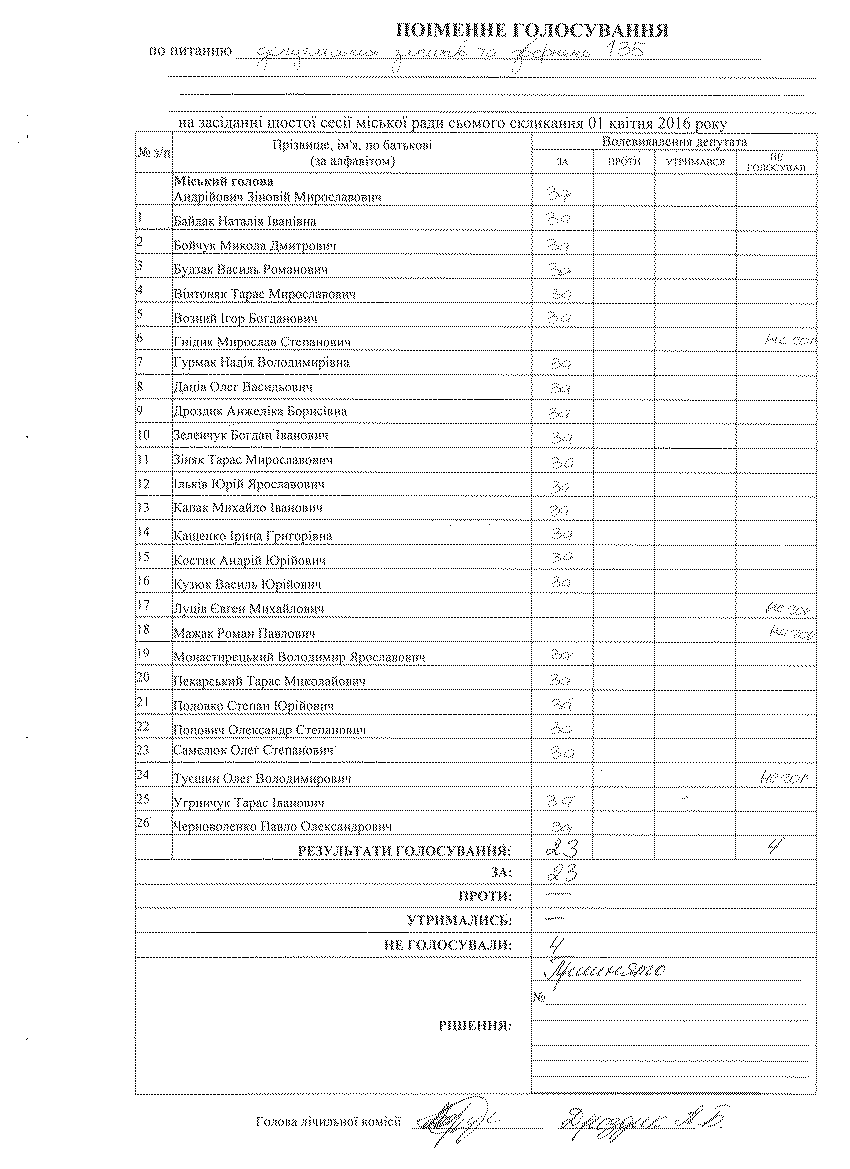 ПОІМЕННЕ ГОЛОСУВАННЯ
по питанню 135
на засіданні шостої сесії міської ради сьомого скликання 01 квітня 2016 року
№ з/п Прізвище, ім'я, по батькові (за алфавітом) Волевиявлення депутата
ЗА ПРОТИ УТРИМАВСЯ НЕ ГОЛОСУВАВ
Міський голова
Андрійович Зіновій Мирославович За
1 Байдак Наталія Іванівна За
2 Бойчук Микола Дмитрович За
3 Будзак Василь Романович За
4 Війтоняк Тарас Мирославович За
5 Возний Ігор Богданович За
6 Гнідик Мирослав Степанович не гол
7 Гурмак Надія Володимирівна За
8 Даців Олег Васильович За
9 Дроздик Анжеліка Борисівна За
10 Зеленчук Богдан Іванович За
11 Зіняк Тарас Мирославович За
12 Ільків Юрій Ярославович За
13 Капак Михайло Іванович За
14 Кащенко Ірина Григорівна За
15 Костик Андрій Юрійович За
16 Кузюк Василь Юрійович За
17 Луців Євген Михайлович не гол
18 Мажак Роман Павлович не гол
19 Монастирецький Володимир Ярославович За
20 Пекарський Тарас Миколайович За
21 Половко Степан Юрійович За
22 Попович Олександр Степанович За
23 Самелюк Олег Степанович За
24 Туєшин Олег Володимирович не гол
25 Угриничук Тарас Іванович За
26 Черноволенко Павло Олександрович За
РЕЗУЛЬТАТИ ГОЛОСУВАННЯ: 23 4
ЗА: 23
ПРОТИ: —
УТРИМАЛИСЬ: —
НЕ ГОЛОСУВАЛИ: 4
Прийнято
№
РІШЕННЯ:
Голова лічильної комісії Дроздик А.Б.